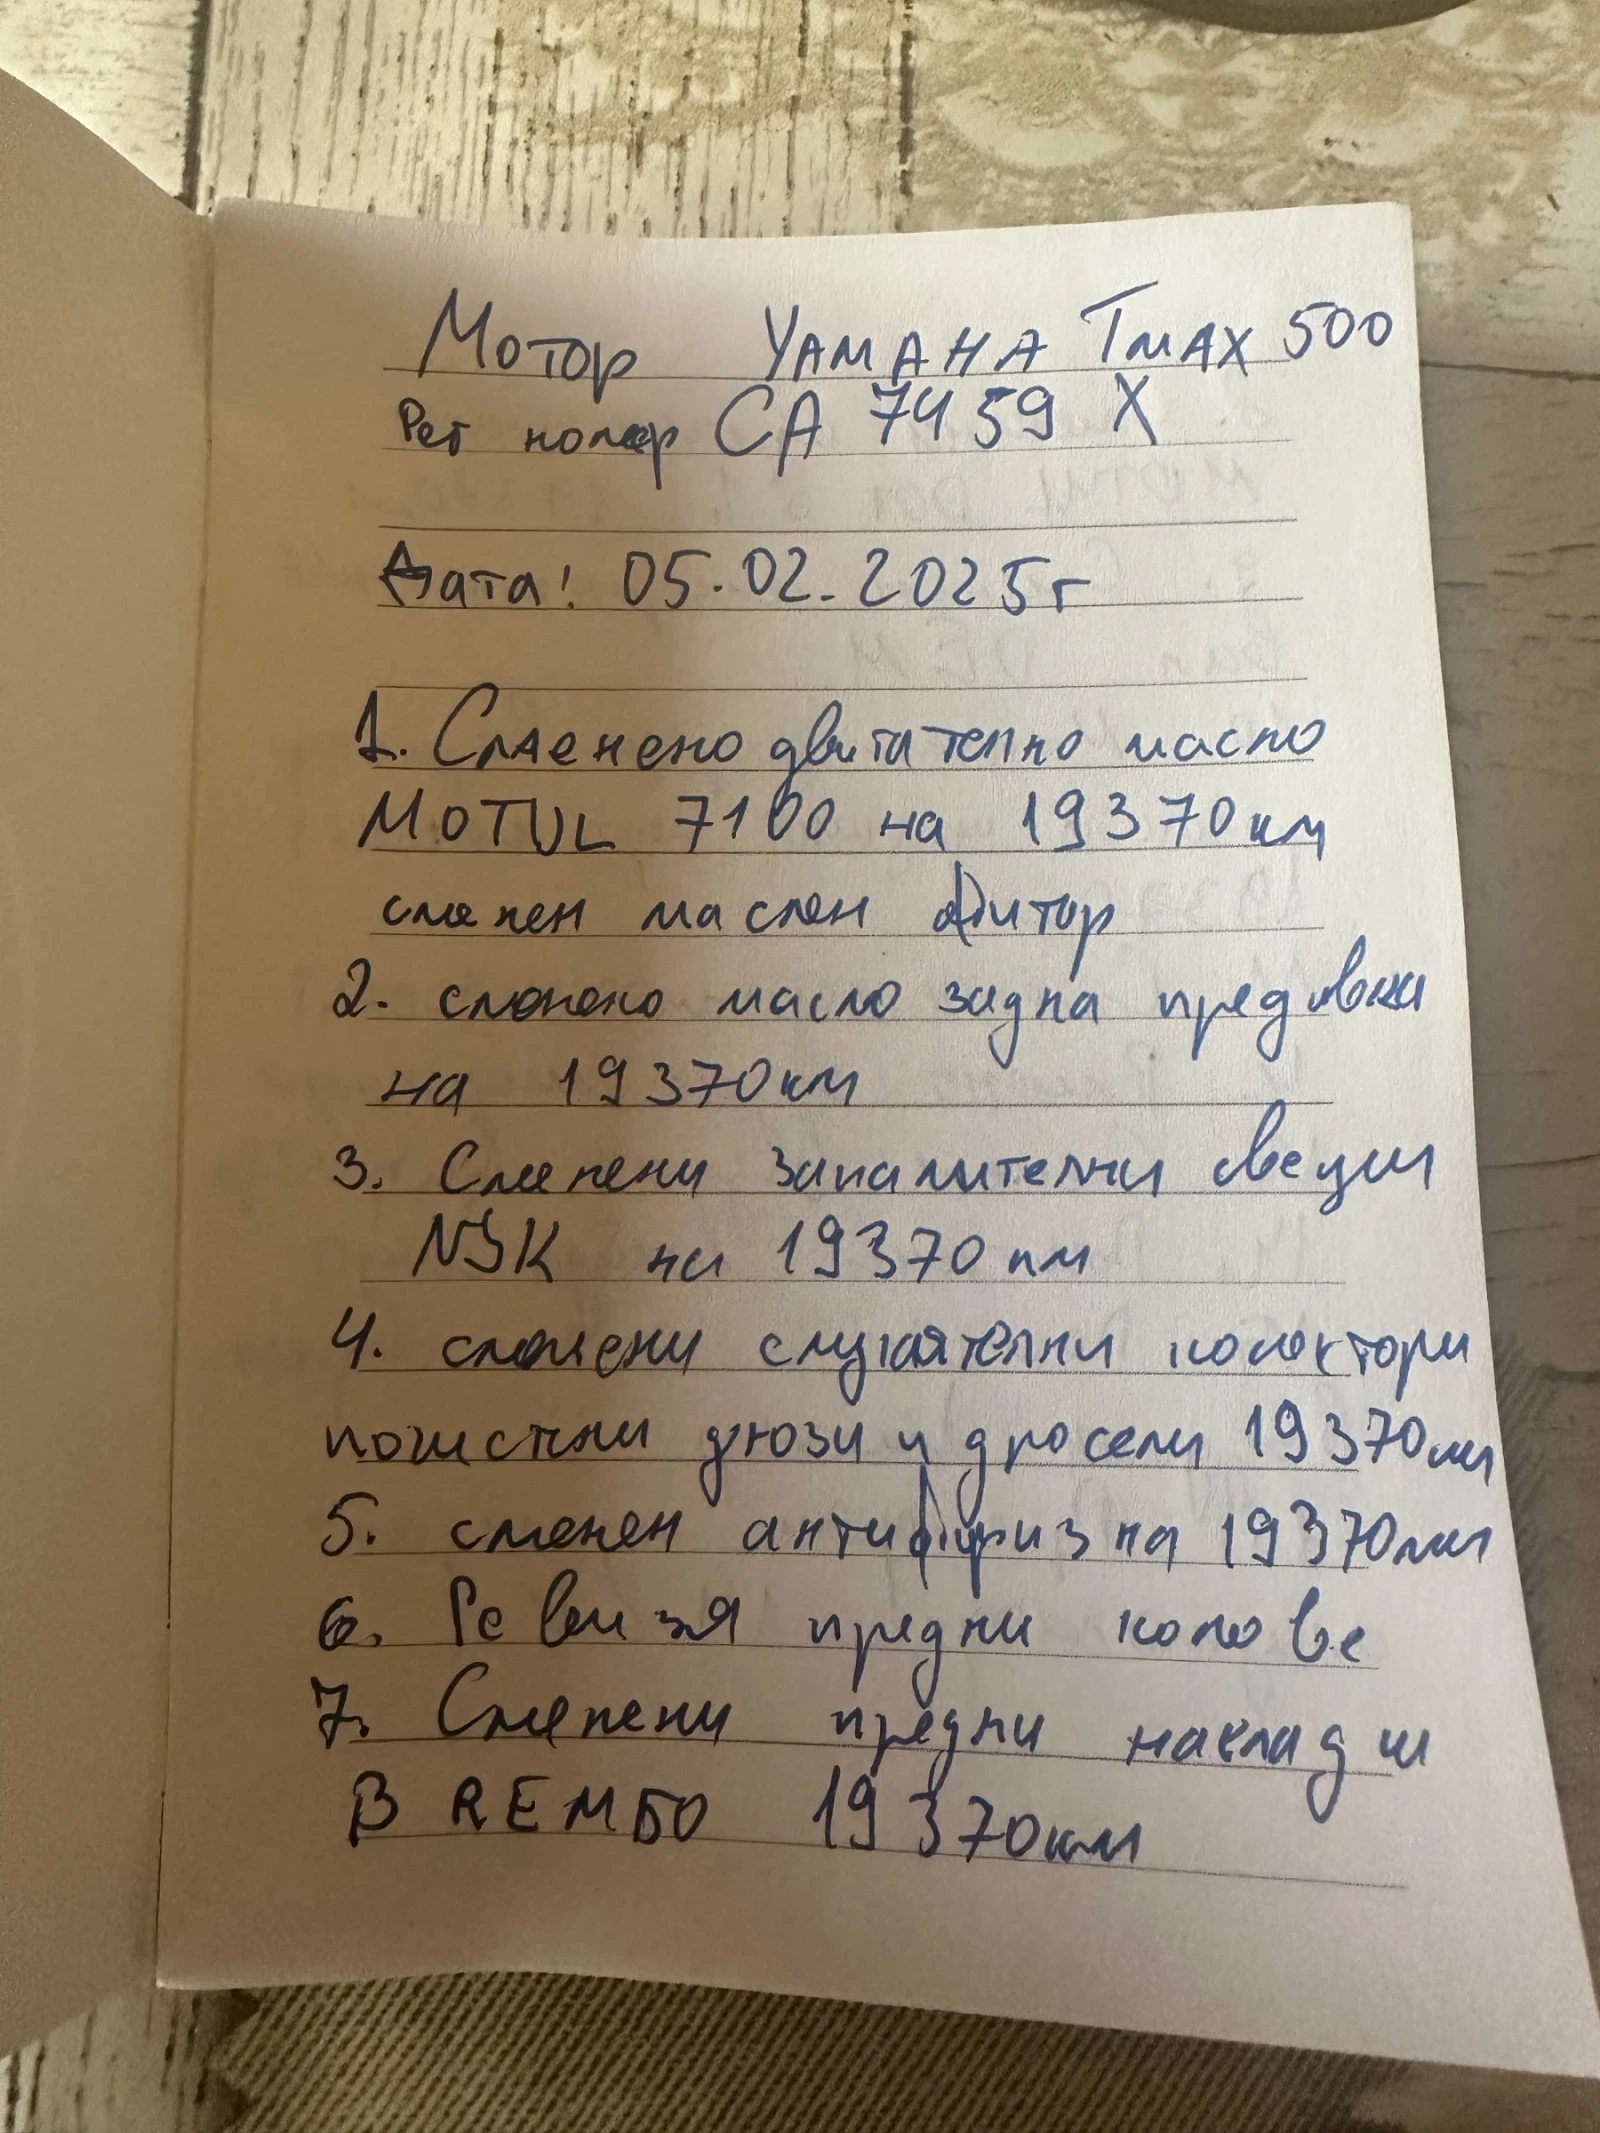 Мотор YAMAHA TMAX 500
Рег номер CA 7459 X
Дата: 05.02.2025г
1. Сменено двигателно масло
MOTUL 7100 на 19370км
сменен маслен филтър
2. сменено масло задна предавки
на 19370км
3. Сменени запалителни свещи
NGK на 19370км
4. сменени смукателни колектори
почистени дюзи и дросели 19370км
5. сменен антифриз на 19370км
6. Ревизия предни колове
7. Сменени предни накладки
BREMБO 19370км